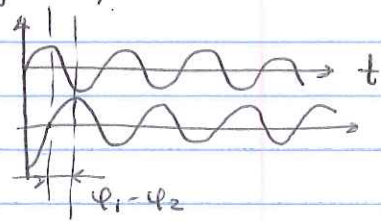 t
φ₁-φ₂